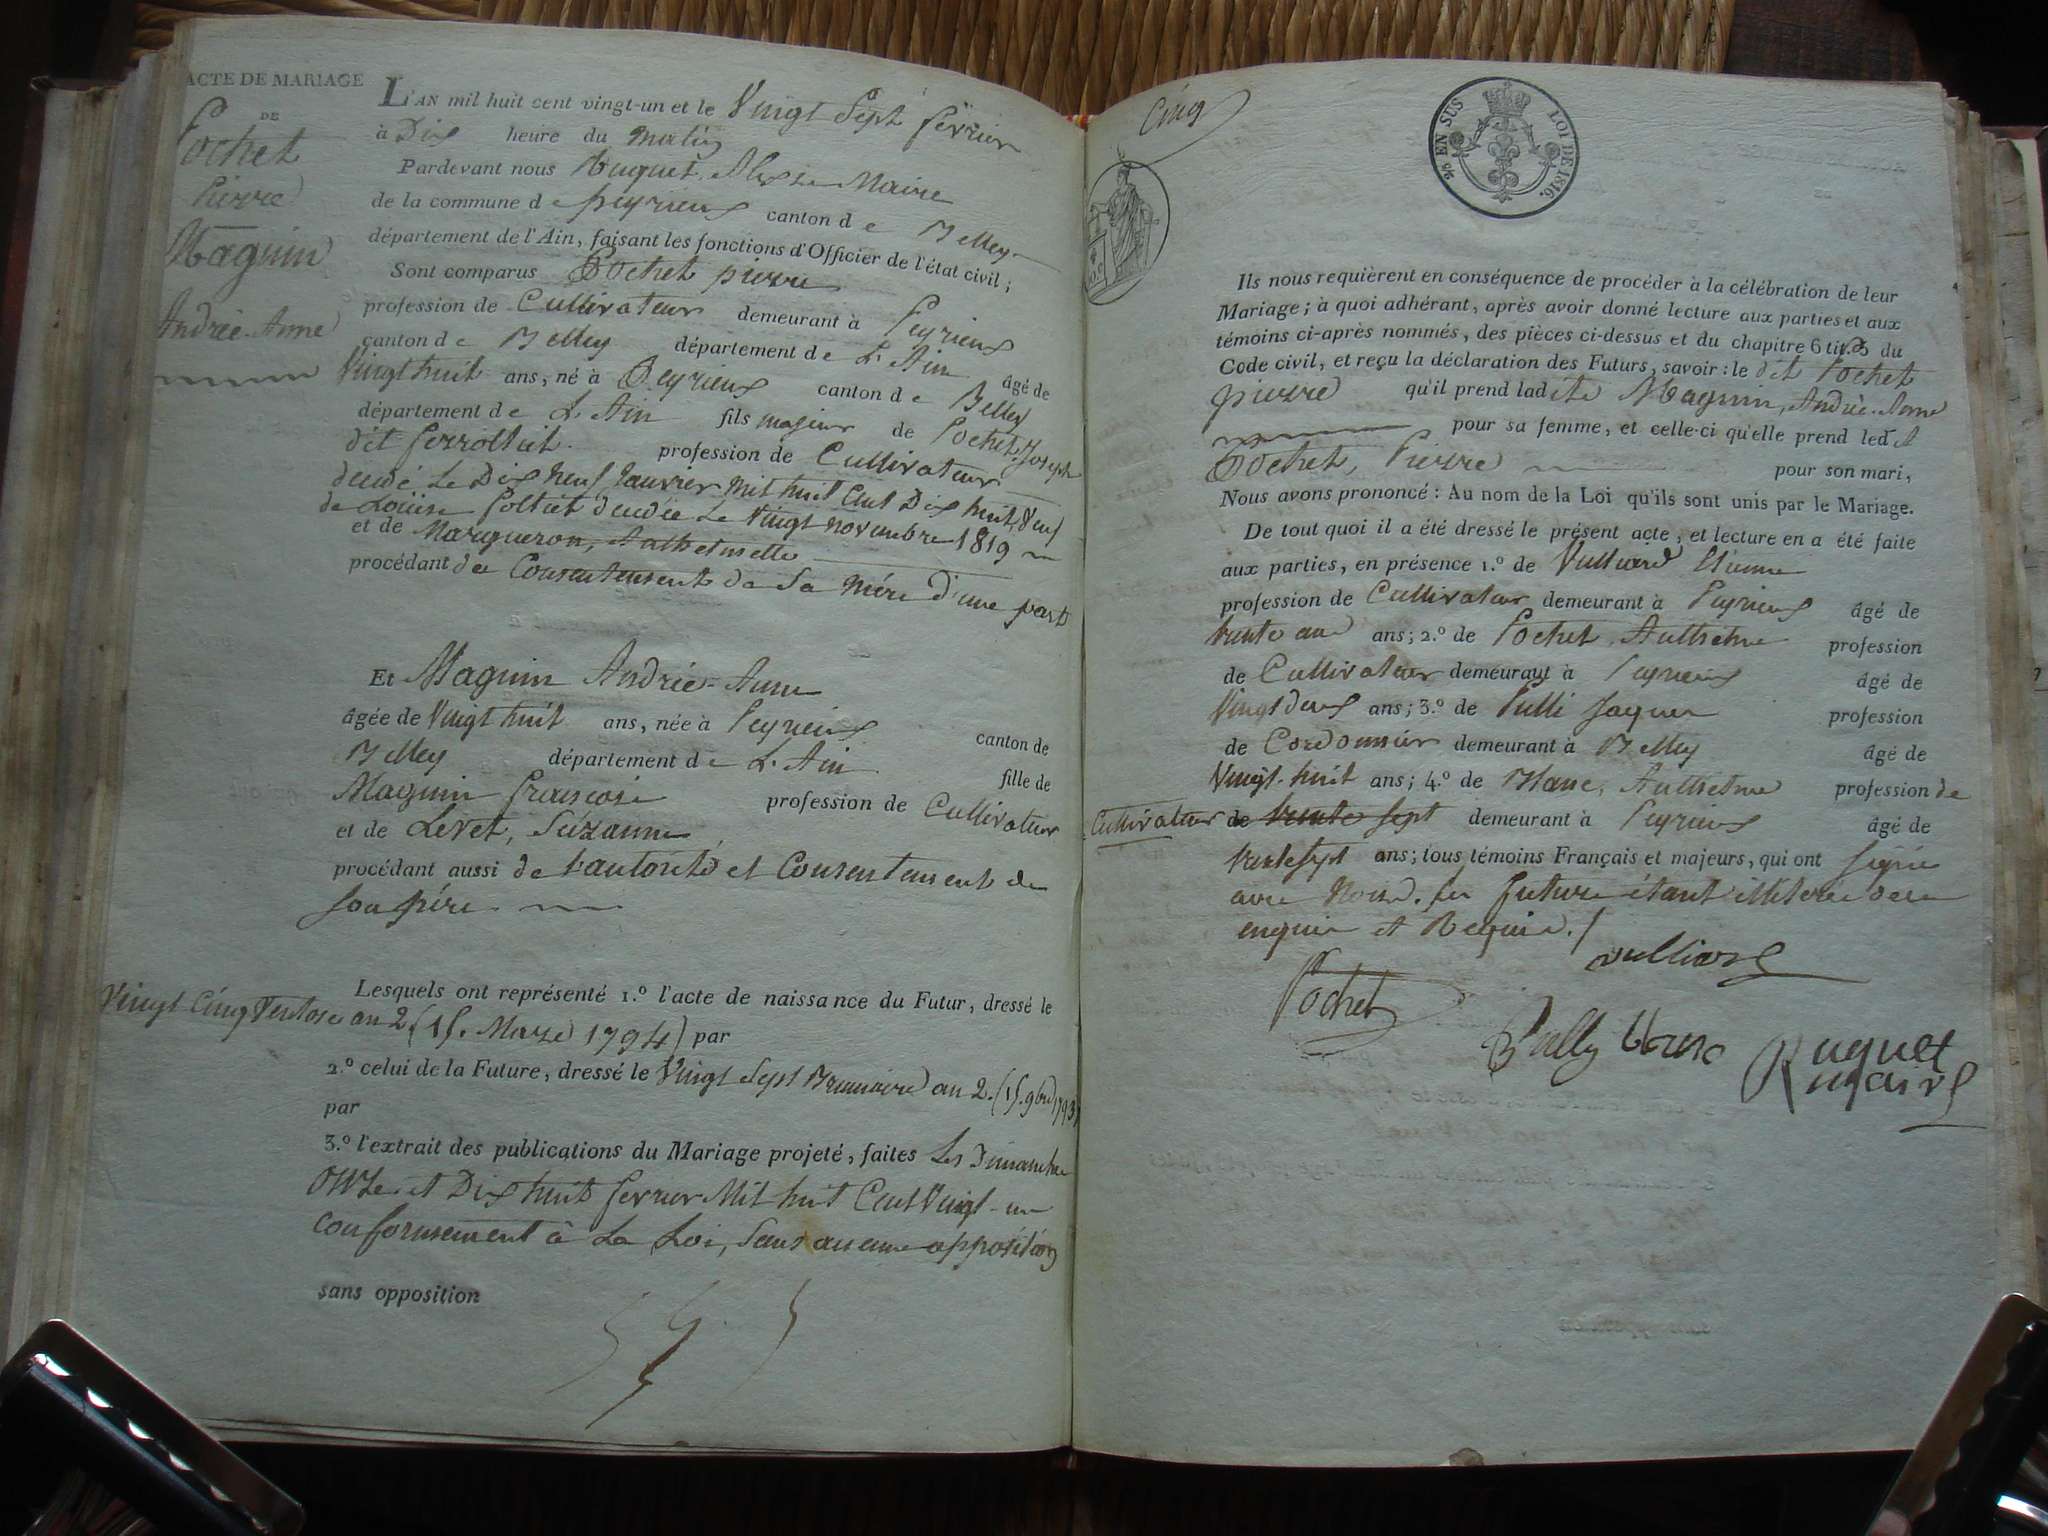 ACTE DE MARIAGE
DE
Pochet
Pierre
Maguin
Andrée-Anne
L'AN mil huit cent vingt-un et le Vingt Sept fevrier
à Dix heure du matin
Pardevant nous Huguet, Maire
de la commune de peyrieux canton de Belley
département de l'Ain, faisant les fonctions d'Officier de l'état civil ;
Sont comparus Pochet pierre
profession de Cultivateur demeurant à Peyrieux
canton de Belley département de L'Ain âgé de
Vingt huit ans, né à Peyrieux canton de Belley
département de L'Ain fils majeur de Pochet Joseph
dit profession de Cultivateur
décédé le Dix neuf Janvier mil huit Cent Dix huit, Veuf
de Louise décédée le Vingt novembre 1819
et de Marqueron,
procédant du Consentement de Sa Mére d'une part
Et Maguin Andrée-Anne
âgée de Vingt huit ans, née à Peyrieux canton de
Belley département de L'Ain fille de
Maguin françois profession de Cultivateur
et de Levet, Suzanne
procédant aussi de l'autorité et Consentement de
Son pére
Lesquels ont représenté 1.º l'acte de naissance du Futur, dressé le
Vingt Cinq Ventose an 2 (15. Mars 1794) par
2.º celui de la Future, dressé le Vingt Sept Brumaire an 2. (15. 9bre 1793)
par
3.º l'extrait des publications du Mariage projeté, faites Les Dimanche
onze et Dix huit fevrier Mil huit Cent Vingt-un
conformement à La Loi, Sans aucune opposition
sans opposition
Cinq
EN SUS LOI DE 1816.
Ils nous requièrent en conséquence de procéder à la célébration de leur
Mariage ; à quoi adhérant, après avoir donné lecture aux parties et aux
témoins ci-après nommés, des pièces ci-dessus et du chapitre 6 tit. 5 du
Code civil, et reçu la déclaration des Futurs, savoir : le dit Pochet
pierre qu'il prend ladite Maguin, Andrée-Anne
pour sa femme, et celle-ci qu'elle prend ledit
Pochet, Pierre pour son mari,
Nous avons prononcé : Au nom de la Loi qu'ils sont unis par le Mariage.
De tout quoi il a été dressé le présent acte, et lecture en a été faite
aux parties, en présence 1.º de Vulliard Etienne
profession de Cultivateur demeurant à Peyrieux âgé de
trente ans ; 2.º de Pochet, Anthelme profession
de Cultivateur demeurant à Peyrieux âgé de
Vingt deux ans ; 3.º de Pulli Jaques profession
de Cordonnier demeurant à Belley âgé de
Vingt-huit ans ; 4.º de Anthelme profession de
Cultivateur de trente sept demeurant à Peyrieux âgé de
trente sept ans ; tous témoins Français et majeurs, qui ont signé
avec Nous. La future étant illiterée de ce
enquise et Requise./.
vulliard
Pochet
Pully
Huguet
maire